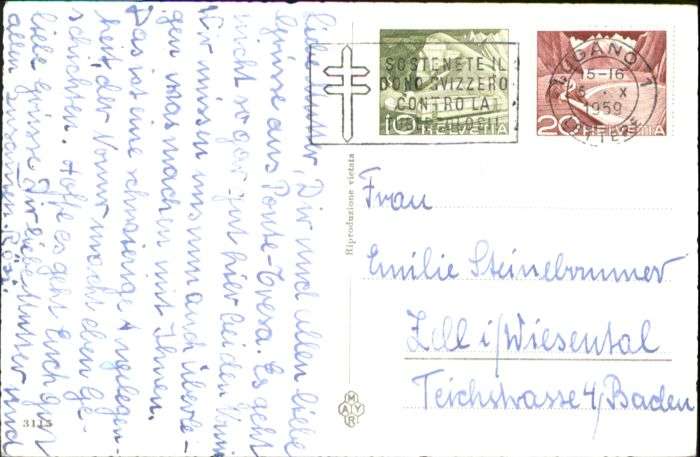 Liebe Mutter, Dir und allen liebe
Grüsse aus Ponte-Tresa. Es geht
nicht so gar gut hier bei den
Wir müssen uns nun auch überle-
gen was machen mit Ihnen.
Das ist eine schwierige Angelegen-
heit, der Nonno macht eben Ge-
schichten. Hoffe es geht Euch gut
liebe Grüsse Dir liebe Mutter und
allen zusammen. Rösi.
3115
Riproduzione vietata
MAYR
SOSTENETE IL
DONO SVIZZERO
CONTRO LA
TUBERCOLOSI
10 HELVETIA
20 HELVETIA
LUGANO 1
15-16
X
1959
LETTERE
Frau
Emilie Steinebrunner
Zell i/Wiesental
Teichstrasse 4/Baden